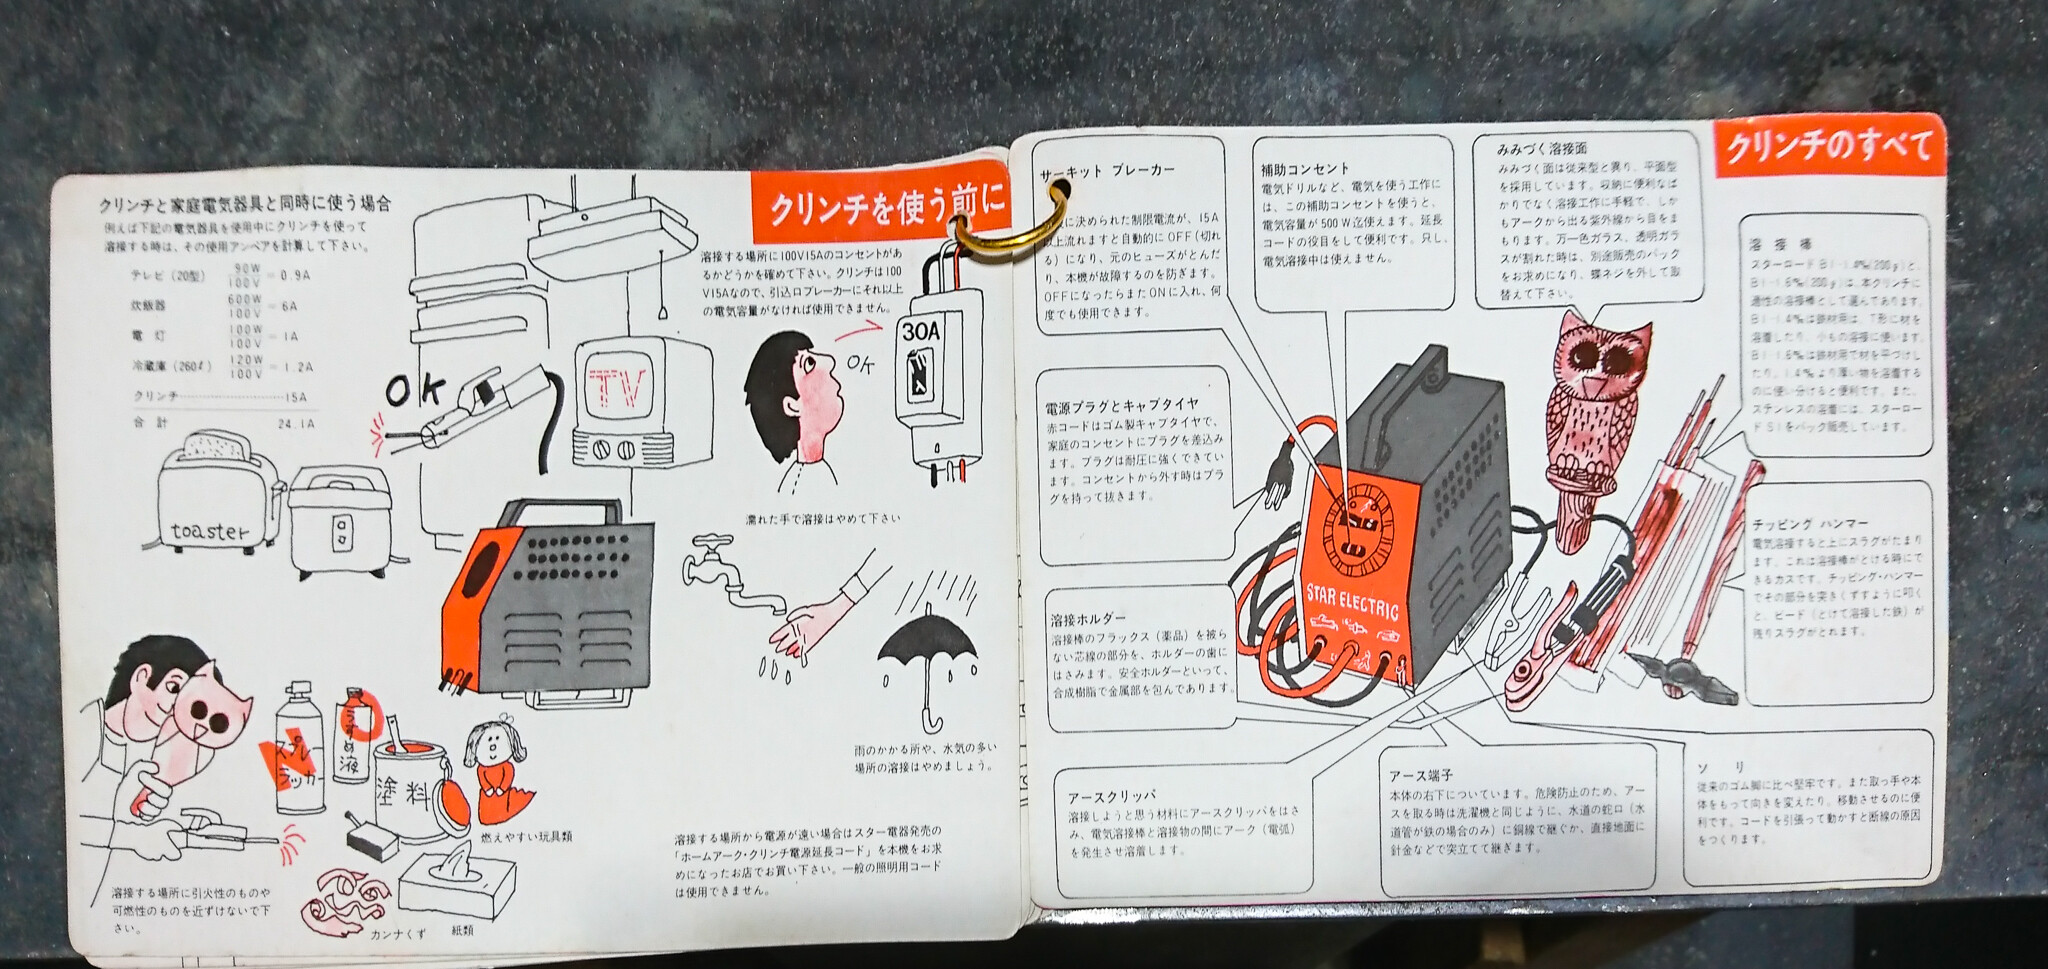 クリンチを使う前に
クリンチと家庭電気器具と同時に使う場合
例えば下記の電気器具を使用中にクリンチを使って
溶接する時は、その使用アンペアを計算して下さい。
テレビ(20型) 90W/100V=0.9A
炊飯器 600W/100V=6A
電灯 100W/100V=1A
冷蔵庫(260ℓ) 120W/100V=1.2A
クリンチ……………………15A
合計 24.1A
OK
toaster
TV
溶接する場所に100V15Aのコンセントがあ
るかどうかを確めて下さい。クリンチは100
V15Aなので、引込口ブレーカーにそれ以上
の電気容量がなければ使用できません。
OK
30A
濡れた手で溶接はやめて下さい
雨のかかる所や、水気の多い
場所の溶接はやめましょう。
スプレー
ラッカー
液
塗料
燃えやすい玩具類
カンナくず
紙類
溶接する場所に引火性のものや
可燃性のものを近ずけないで下
さい。
溶接する場所から電源が遠い場合はスター電器発売の
「ホームアーク・クリンチ電源延長コード」を本機をお求
めになったお店でお買い下さい。一般の照明用コード
は使用できません。
クリンチのすべて
サーキット ブレーカー
に決められた制限電流が、15A
以上流れますと自動的にOFF(切れ
る)になり、元のヒューズがとんだ
り、本機が故障するのを防ぎます。
OFFになったらまたONに入れ、何
度でも使用できます。
補助コンセント
電気ドリルなど、電気を使う工作に
は、この補助コンセントを使うと、
電気容量が500W迄使えます。延長
コードの役目をして便利です。只し、
電気溶接中は使えません。
みみづく溶接面
みみづく面は従来型と異り、平面型
を採用しています。収納に便利なば
かりでなく溶接工作に手軽で、しか
もアークから出る紫外線から目をま
もります。万一色ガラス、透明ガラ
スが割れた時は、別途販売のパック
をお求めになり、蝶ネジを外して取
替えて下さい。
溶接棒
スターロードB1-1.4‰(200g)と、
B1-1.6‰(200g)は、本クリンチに
適性の溶接棒として選んであります。
B1-1.4‰は鉄材用は、T形に材を
溶着したり、小もの溶接に使います。
B1-1.6‰は鉄材用で材を平づけし
たり、1.4‰より厚い物を溶着する
のに使い分けると便利です。また、
ステンレスの溶着には、スターロー
ドS1をパック販売しています。
電源プラグとキャブタイヤ
赤コードはゴム製キャブタイヤで、
家庭のコンセントにプラグを差込み
ます。プラグは耐圧に強くできてい
ます。コンセントから外す時はプラ
グを持って抜きます。
STAR ELECTRIC
チッピング ハンマー
電気溶接すると上にスラグがたまり
ます。これは溶接棒がとける時にで
きるカスです。チッピング・ハンマー
でその部分を突きくずすように叩く
と、ビード(とけて溶接した鉄)が
残りスラグがとれます。
溶接ホルダー
溶接棒のフラックス(薬品)を被ら
ない芯線の部分を、ホルダーの歯に
はさみます。安全ホルダーといって、
合成樹脂で金属部を包んであります。
アースクリッパ
溶接しようと思う材料にアースクリッパをはさ
み、電気溶接棒と溶接物の間にアーク(電弧)
を発生させ溶着します。
アース端子
本体の右下についています。危険防止のため、アー
スを取る時は洗濯機と同じように、水道の蛇口(水
道管が鉄の場合のみ)に銅線で継ぐか、直接地面に
針金などで突立てて継ぎます。
ソリ
従来のゴム脚に比べ堅牢です。また取っ手や本
体をもって向きを変えたり、移動させるのに便
利です。コードを引張って動かすと断線の原因
をつくります。